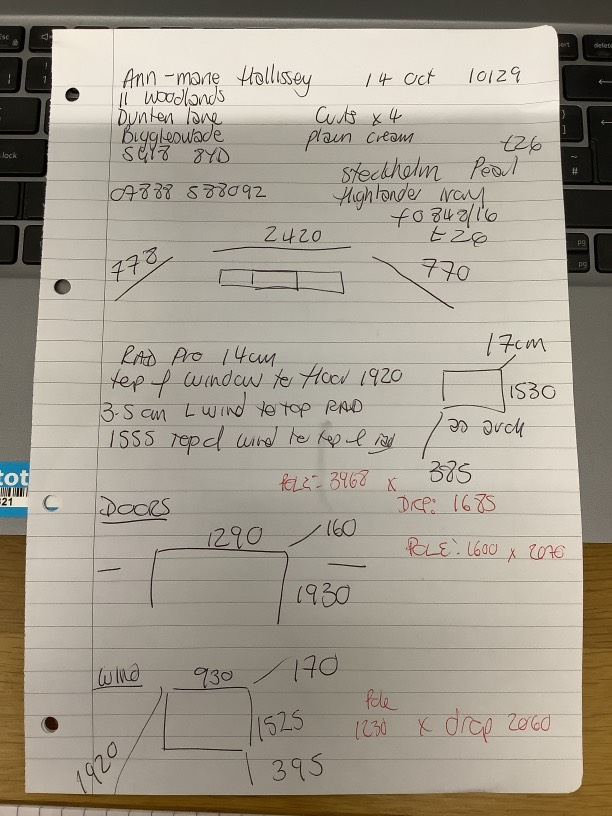 Ann-marie Hollissey 14 Oct 10129
11 Woodlands
Dunton lane Cuts x 4
Biggleswade plain cream
SG18 8YD £26
Stockholm Pearl
07888 588092 Highlander Ivory
£0848/16
£26
2420
778 770
17cm
RAD Pro 14cm
top of window to floor 1920 1530
3.5 cm L wind to top RAD
1555 top of wind to top of rad
385
POLE = 3968 x
DROP: 1685
DOORS
1290 160
POLE: 1600 x 2070
1930
WIND 930 170
Pole
1525 1230 x drop 2060
1920 395